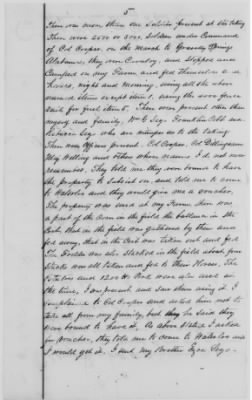 5
There was more than one Soldier present at the taking
There were 2500 or 3000, Soldiers under Command
of Col Cooper, on the March to Gravelly Springs
Alabama, they were Cavalry, and Stopped and
Camped on my Farm and fed themselves and
horses, night and Morning, using all the above
named items except item 1. Using the 2000 fence
rails for fuel item 5. There were present then
myself and family, Wm G Segs Franklin Cobb and
Segs who are witnesses to the taking
There were Officers present, Col Cooper, Col Dillingham
May Welling and others whose names I do not now
remember. They told me they were bound to have
the property to Subsist on and told me to come
to Waterloo and they would give me a voucher.
The property was used at my Farm there was
a part of the Corn in the field the ballance in the
Crib. that in the field was gathered by them and
fed away, that in the Crib was taken out and fed
The Fodder was also Stacked in the field about four
Stacks was all taken and fed to their Horses. The
Potatoes and 1200 lb Pork were also used at
the time, I was present and saw them using it. I
complained to Col Cooper and asked him not to
take all from my family, but they he said they
were bound to have it, As above stated I asked
for voucher, they told me to come to Waterloo and
I would get it. I and my Brother Ezra Segs